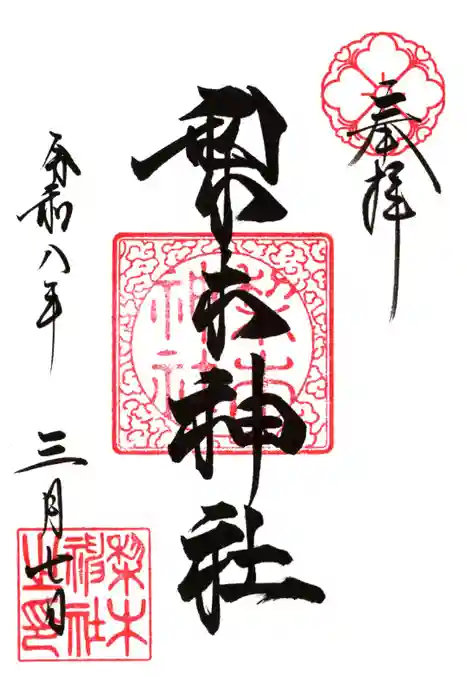 奉拝
梨木神社
令和八年
三月七日
梨木
神社
梨木
神社
之印